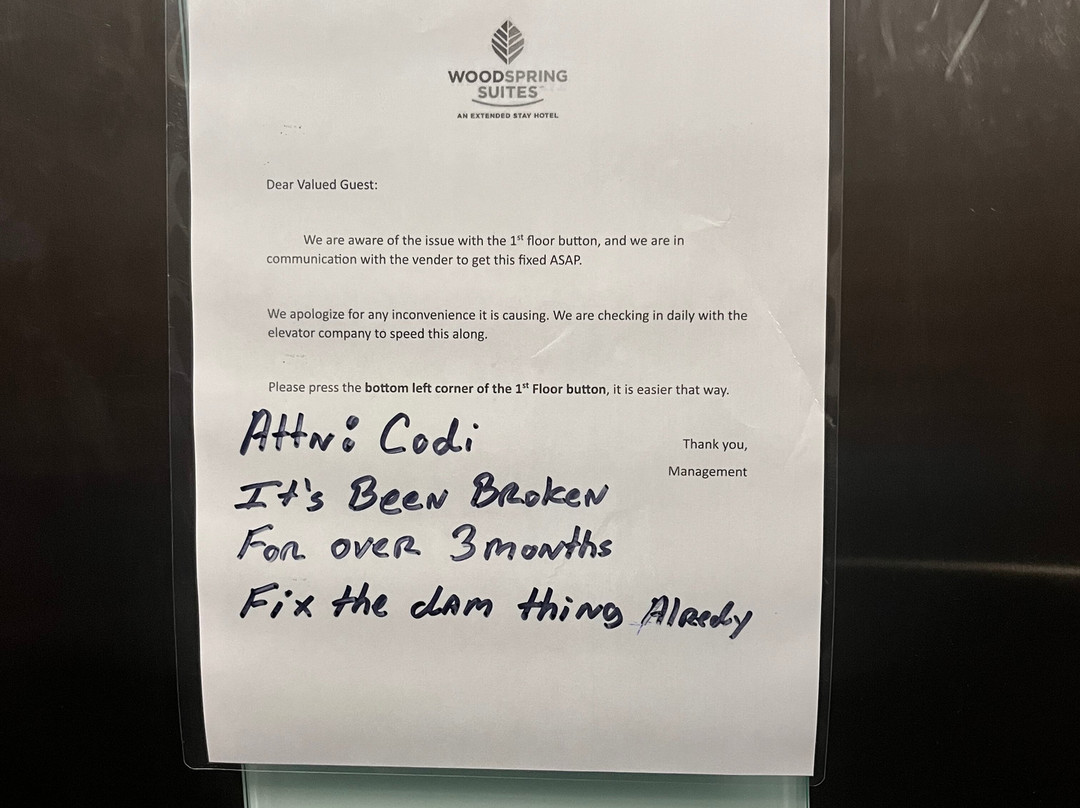 WOODSPRING
SUITES
AN EXTENDED STAY HOTEL
Dear Valued Guest:
We are aware of the issue with the 1st floor button, and we are in
communication with the vender to get this fixed ASAP.
We apologize for any inconvenience it is causing. We are checking in daily with the
elevator company to speed this along.
Please press the bottom left corner of the 1st Floor button, it is easier that way.
Thank you,
Management
Attn: Codi
It's Been Broken
For over 3 months
Fix the dam thing Alredy